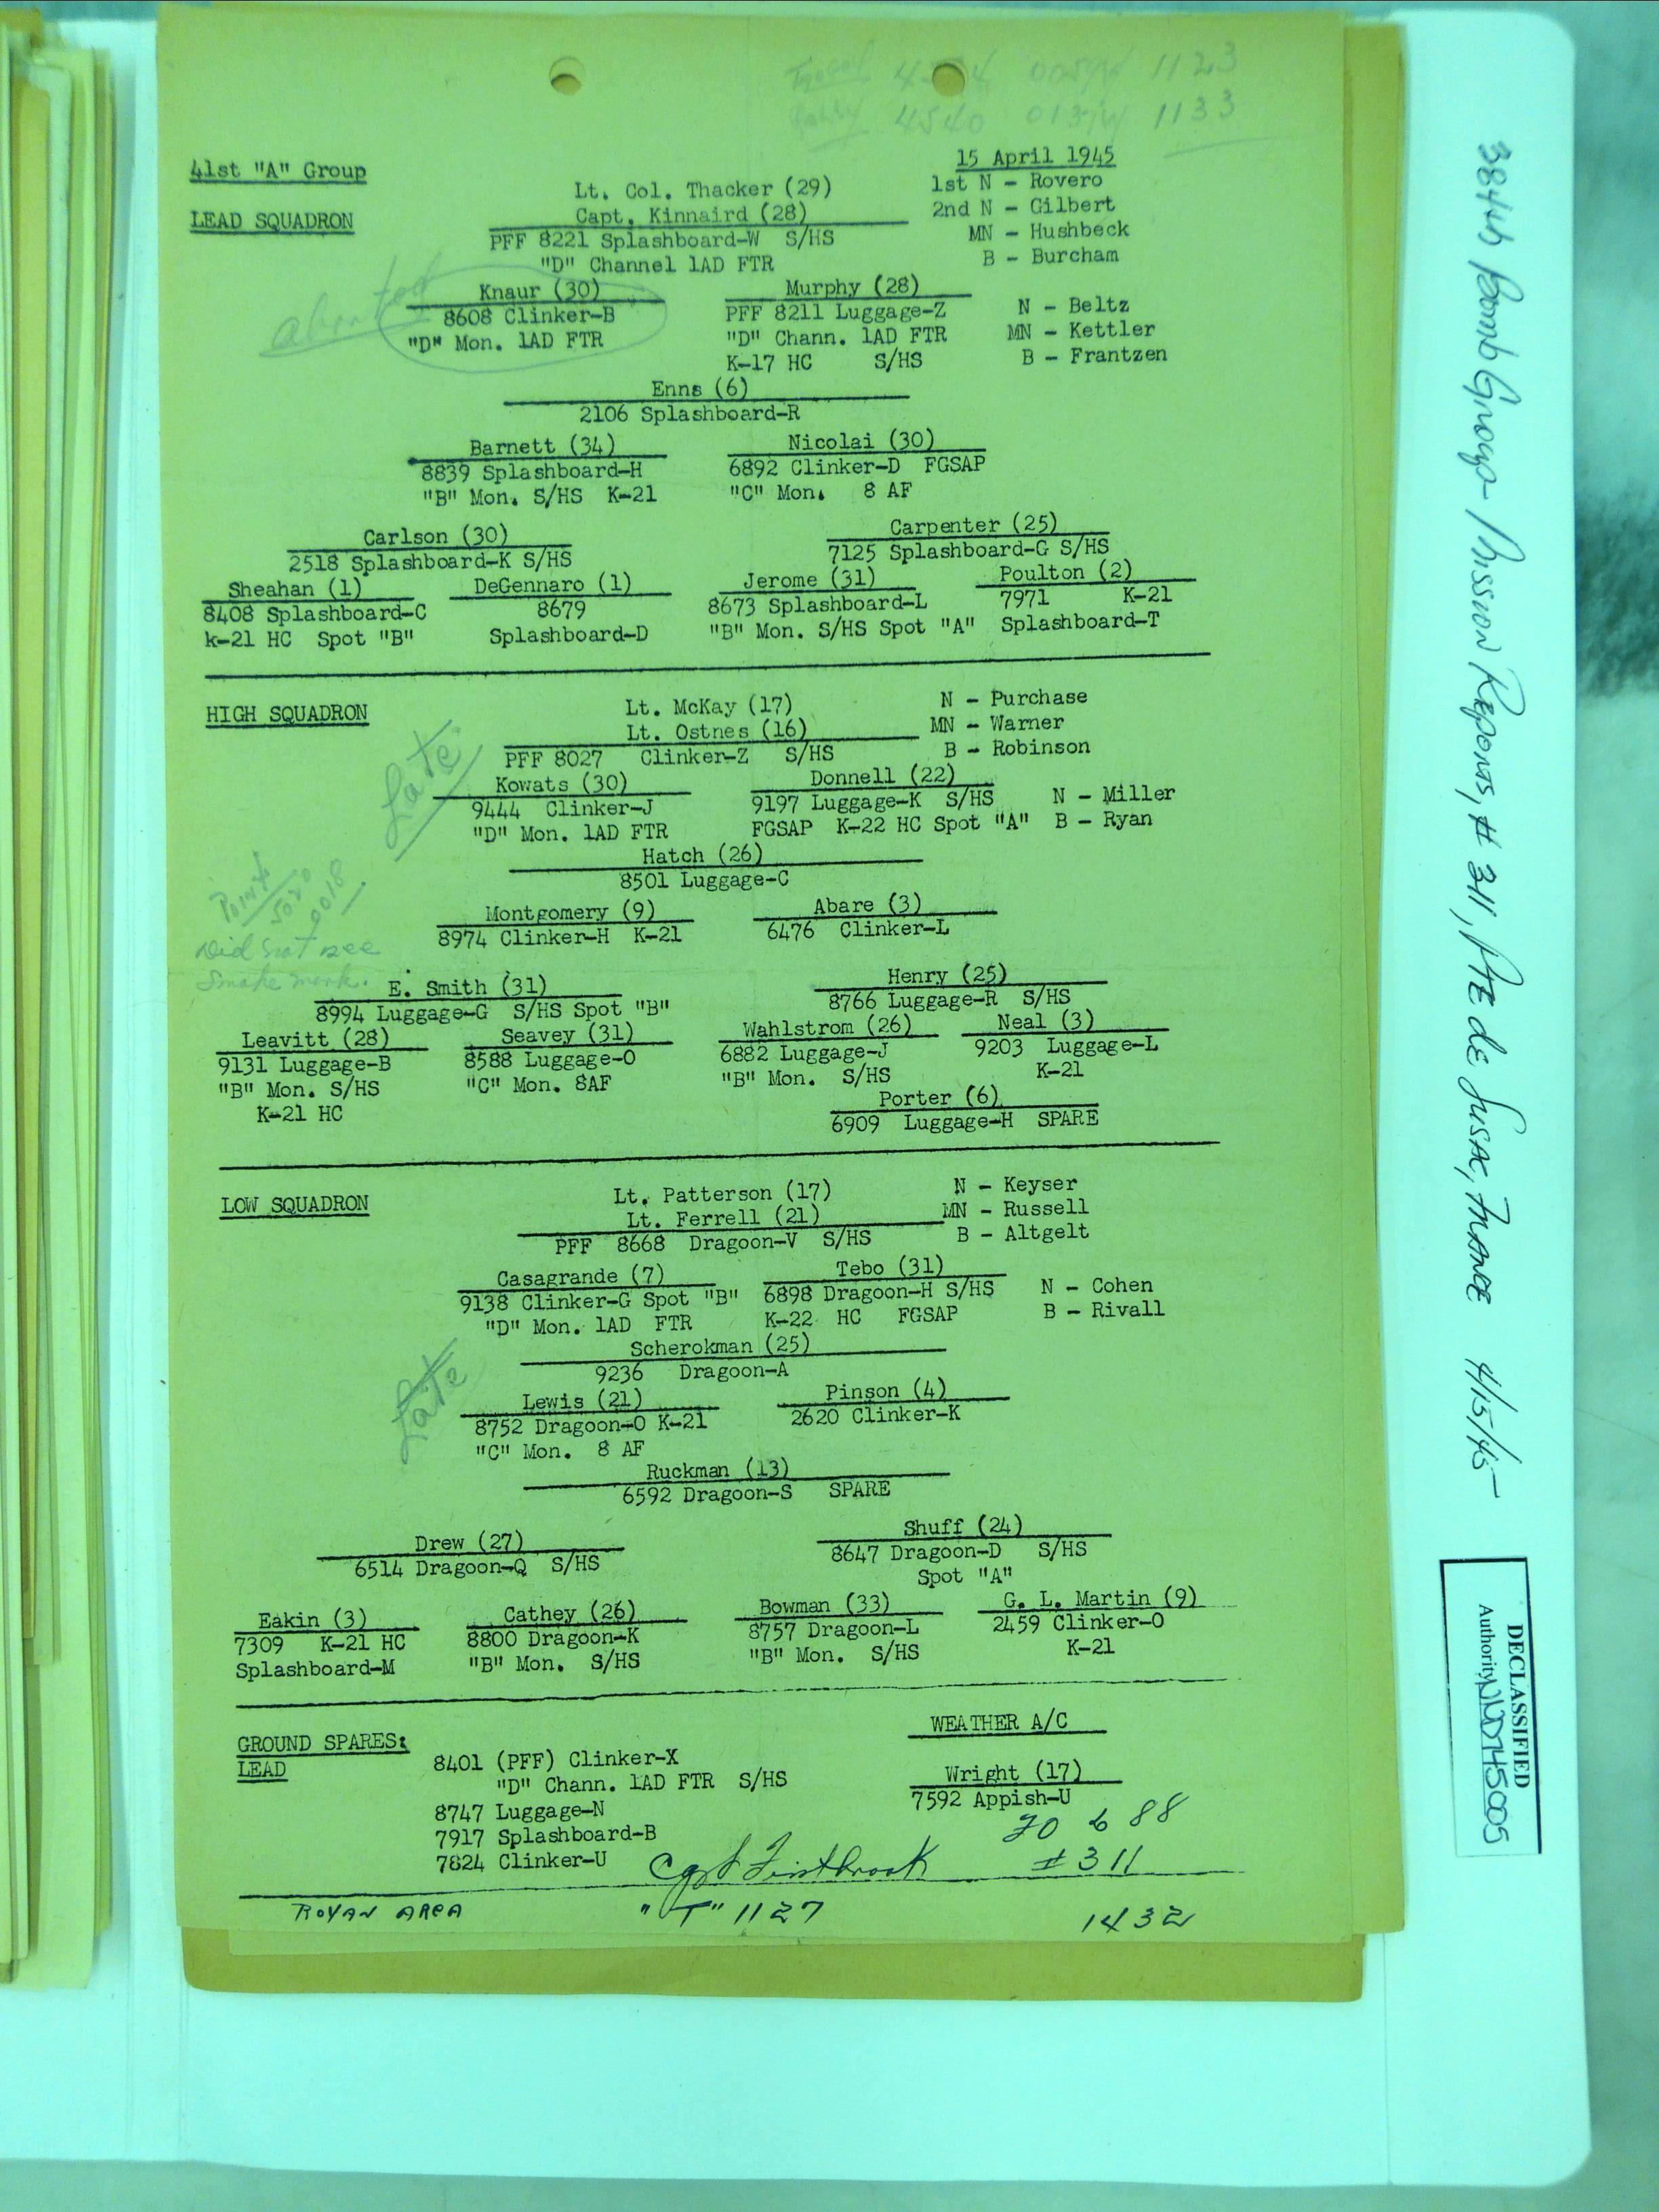 1123
4540 1133
41st "A" Group
15 April 1945
Lt. Col. Thacker (29) 1st N - Rovero
LEAD SQUADRON Capt. Kinnaird (28) 2nd N - Gilbert
PFF 8221 Splashboard-W S/HS MN - Hushbeck
"D" Channel 1AD FTR B - Burcham
aborted
Knaur (30) Murphy (28)
8608 Clinker-B PFF 8211 Luggage-Z N - Beltz
"D" Mon. 1AD FTR "D" Chann. 1AD FTR MN - Kettler
K-17 HC S/HS B - Frantzen
Enns (6)
2106 Splashboard-R
Barnett (34) Nicolai (30)
8839 Splashboard-H 6892 Clinker-D FGSAP
"B" Mon. S/HS K-21 "C" Mon. 8 AF
Carlson (30) Carpenter (25)
2518 Splashboard-K S/HS 7125 Splashboard-G S/HS
Sheahan (1) DeGennaro (1) Jerome (31) Poulton (2)
8408 Splashboard-C 8679 8673 Splashboard-L 7971 K-21
k-21 HC Spot "B" Splashboard-D "B" Mon. S/HS Spot "A" Splashboard-T
HIGH SQUADRON Lt. McKay (17) N - Purchase
Lt. Ostnes (16) MN - Warner
PFF 8027 Clinker-Z S/HS B - Robinson
Late
Kowats (30) Donnell (22)
9444 Clinker-J 9197 Luggage-K S/HS N - Miller
"D" Mon. 1AD FTR FGSAP K-22 HC Spot "A" B - Ryan
Hatch (26)
8501 Luggage-C
Point
5020
0018
Did not see
Smoke mark.
Montgomery (9) Abare (3)
8974 Clinker-H K-21 6476 Clinker-L
E. Smith (31) Henry (25)
8994 Luggage-G S/HS Spot "B" 8766 Luggage-R S/HS
Leavitt (28) Seavey (31) Wahlstrom (26) Neal (3)
9131 Luggage-B 8588 Luggage-O 6882 Luggage-J 9203 Luggage-L
"B" Mon. S/HS "C" Mon. 8AF "B" Mon. S/HS K-21
K-21 HC
Porter (6)
6909 Luggage-H SPARE
LOW SQUADRON Lt. Patterson (17) N - Keyser
Lt. Ferrell (21) MN - Russell
PFF 8668 Dragoon-V S/HS B - Altgelt
Casagrande (7) Tebo (31)
9138 Clinker-G Spot "B" 6898 Dragoon-H S/HS N - Cohen
"D" Mon. 1AD FTR K-22 HC FGSAP B - Rivall
Scherokman (25)
9236 Dragoon-A
Late
Lewis (21) Pinson (4)
8752 Dragoon-O K-21 2620 Clinker-K
"C" Mon. 8 AF
Ruckman (13)
6592 Dragoon-S SPARE
Drew (27) Shuff (24)
6514 Dragoon-Q S/HS 8647 Dragoon-D S/HS
Spot "A"
Eakin (3) Cathey (26) Bowman (33) G. L. Martin (9)
7309 K-21 HC 8800 Dragoon-K 8757 Dragoon-L 2459 Clinker-O
Splashboard-M "B" Mon. S/HS "B" Mon. S/HS K-21
GROUND SPARES: WEATHER A/C
LEAD 8401 (PFF) Clinker-X
"D" Chann. 1AD FTR S/HS Wright (17)
8747 Luggage-N 7592 Appish-U
7917 Splashboard-B
7824 Clinker-U
688
311
ROYAN AREA "T" 1127 1432
384th Bomb Group - Mission Reports, # 311, Pte de Susac, France 4/15/45
DECLASSIFIED
Authority NND745005